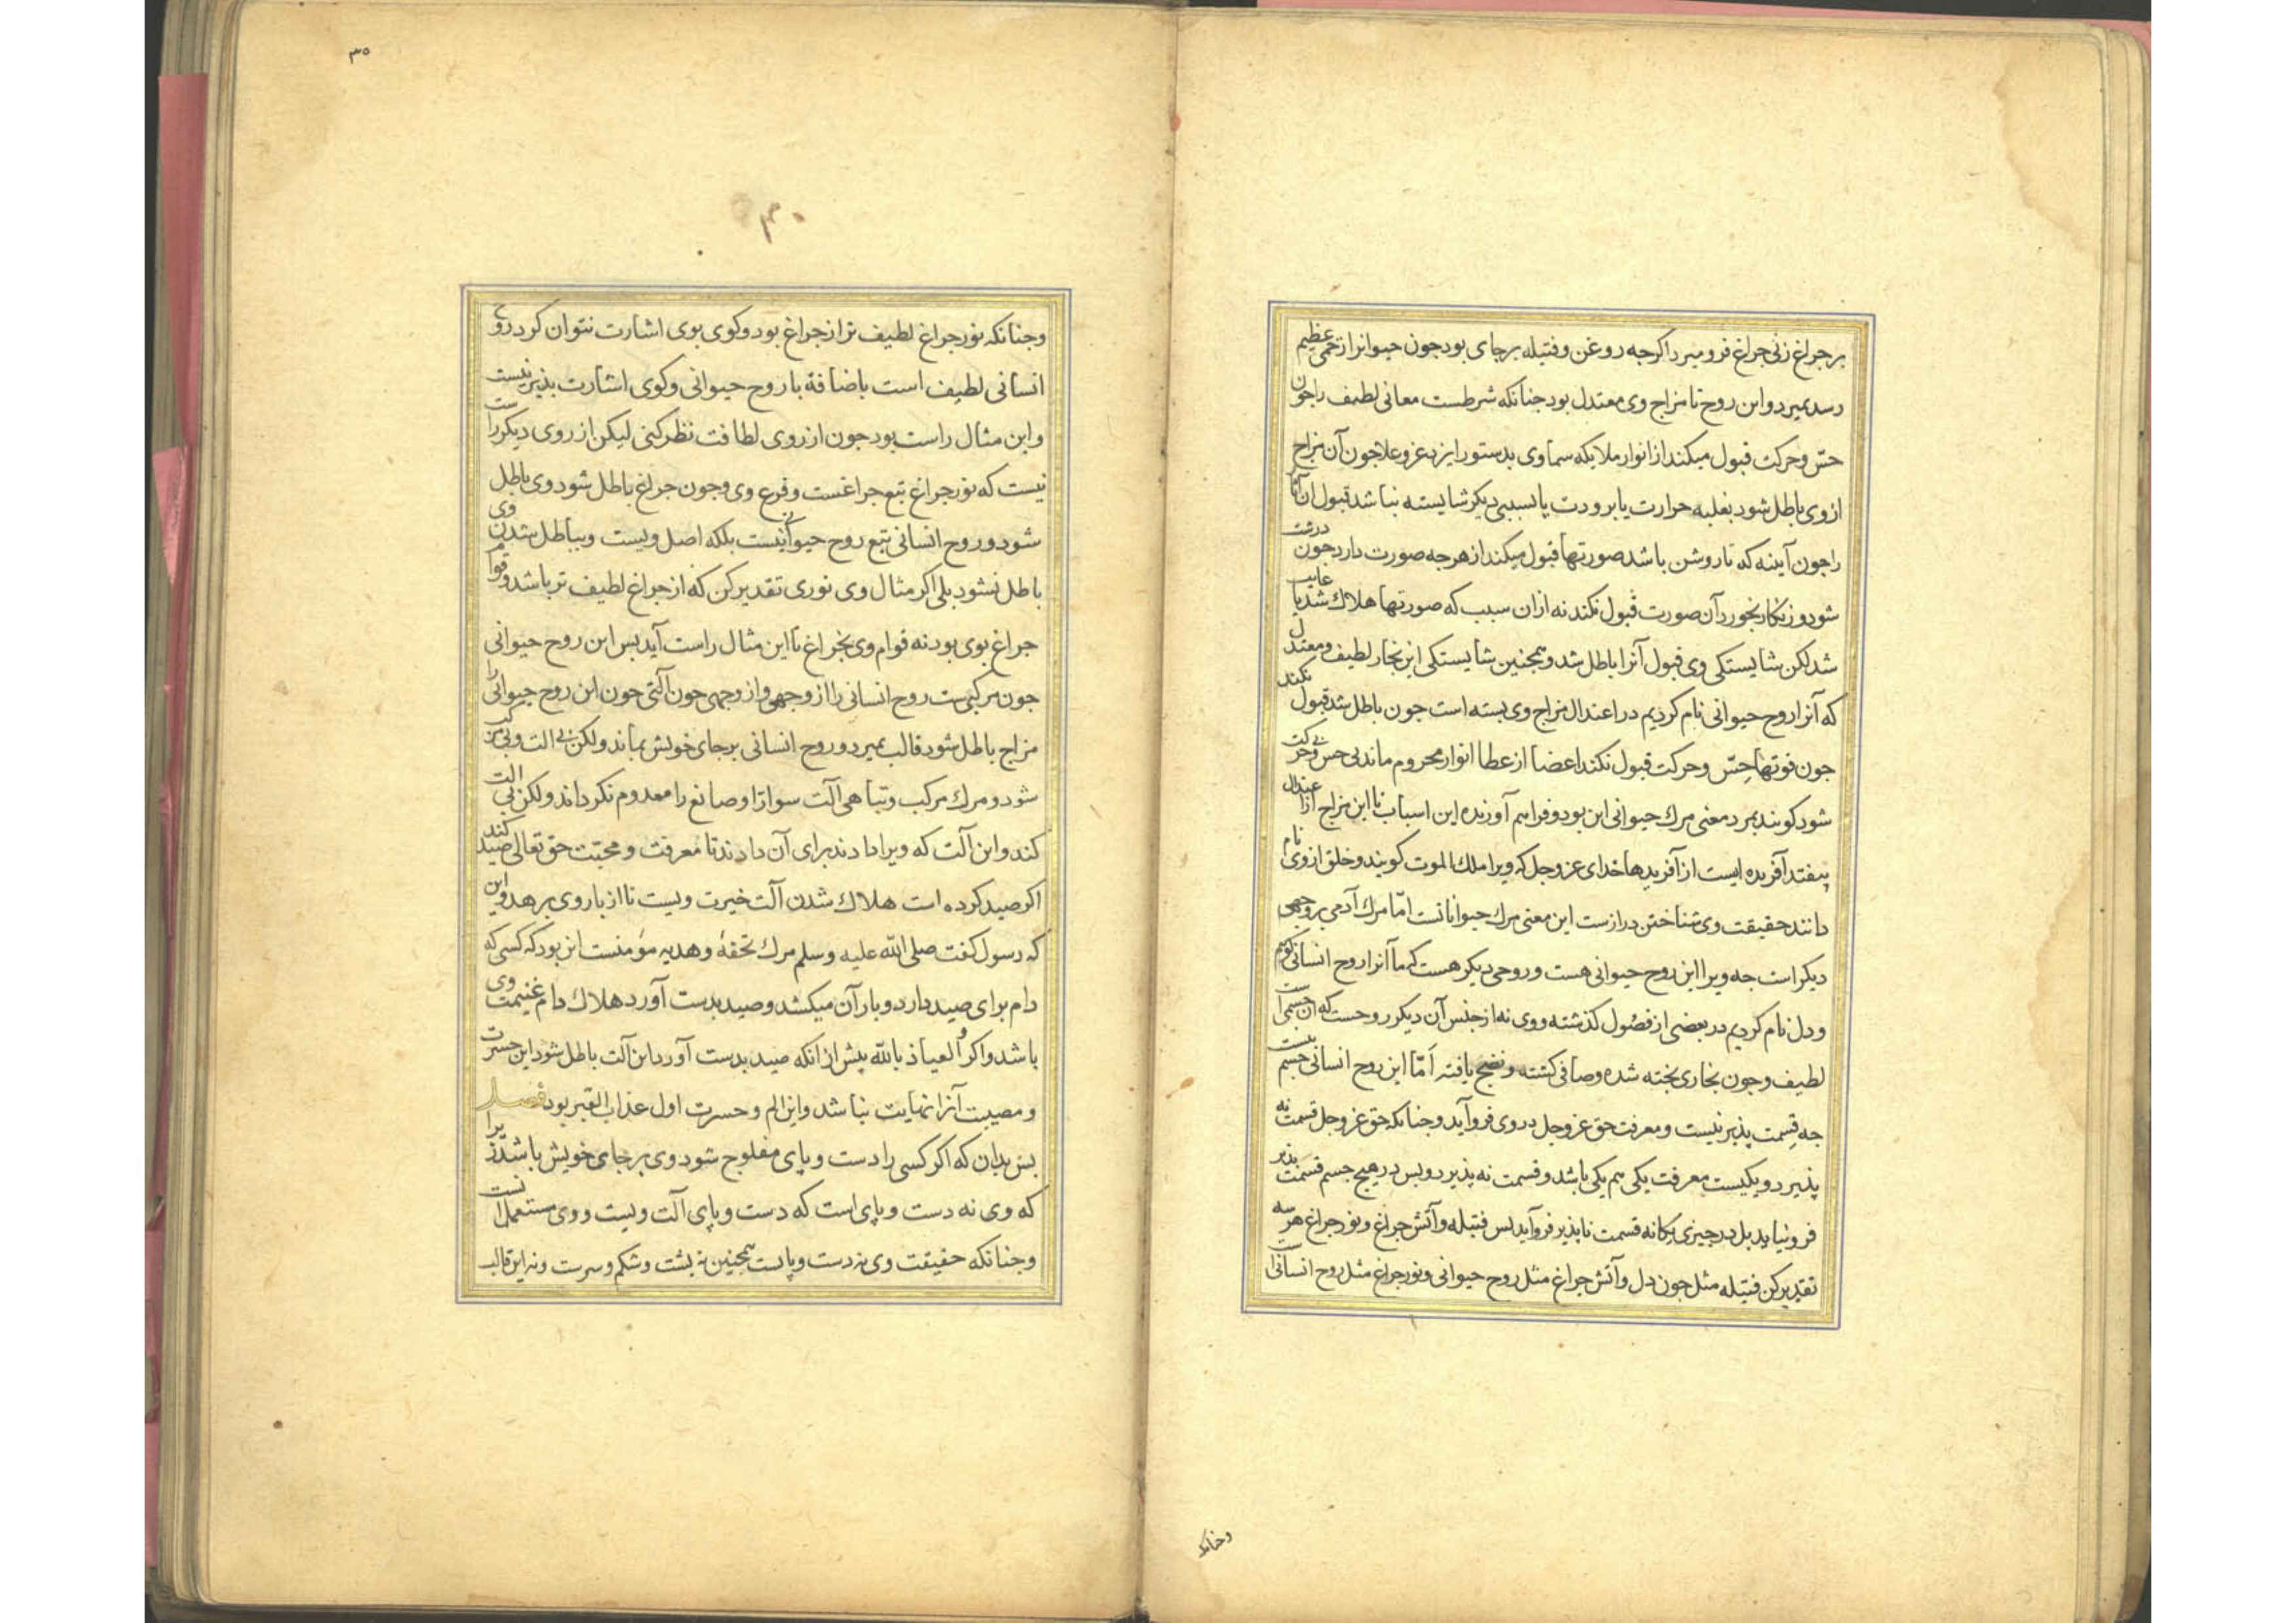 بر چراغ زنی چراغ فرو میرد اکرچه روغن وفتیله برجای بود چون حیوانرا زخمی عظیم
رسد بمیرد واین روح تا مزاج وی معتدل بود چنانکه شرطست معانی لطیف را چون
حسّ وحرکت قبول میکند از انوار ملایکه سماوی بدستور ایزد عز وعلا چون آن مزاج
از وی باطل شود بغلبه حرارت یا برودت یا بسببی دیکر شایسته نباشد قبول آن آثار
را چون آینه که تا روشن باشد صورتها قبول میکند از هرچه صورت دارد چون درشت
شود وزنکار بخورد آن صورت قبول نکند نه ازان سبب که صورتها هلاک شد یا غایب
شد لکن شایستکی وی قبول آنرا باطل شد وهمچنین شایستکی این بخار لطیف ومعتدل
که آنرا روح حیوانی نام کردیم در اعتدال مزاج وی بسته است چون باطل شد قبول نکند
چون قوتها حسّ وحرکت قبول نکند اعضا از عطا انوار محروم ماند بی حس وبی حرکت
شود کویند بمرد معنی مرک حیوانی این بود وفراهم آورنده این اسباب تا این مزاج از اعتدال
بیفتد آفریده ایست از آفریدها خدای عز وجل که ویرا ملک الموت کویند وخلق از وی نام
دانند حقیقت وی شناختن درازست این معنی مرک حیواناتست امّا مرک آدمی بر وجهی
دیکر است چه ویرا این روح حیوانی هست وروحی دیکر هست که ما آنرا روح انسانی کوییم
ودل نام کردیم در بعضی از فصُول کذشته ووی نه از جنس آن دیکر روحست که آن جسمی است
لطیف وچون بخاری پخته شده وصافی کشته ونضج یافته امّا این روح انسانی جسم نیست
چه قسمت پذیر نیست ومعرفت حق عز وجل در وی فرو آید وچنانکه حق عز وجل قسمت نه
پذیرد ویکیست معرفت یکی هم یکی باشد وقسمت نه پذیرد وپس در هیچ جسم قسمت پذیر
فرو نیاید بل در چیزی یکانه قسمت ناپذیر فرو آید پس فتیله وآتش چراغ ونور چراغ هر سه
تقدیر کن فتیله مثل چون دل وآتش چراغ مثل روح حیوانی ونور چراغ مثل روح انسانی است
وچنانکه
۳۵
۳۰
وچنانکه نور چراغ لطیف تر از چراغ بود وکوی بوی اشارت نتوان کرد روح
انسانی لطیف است باضافة با روح حیوانی وکوی اشارت پذیر نیست
واین مثال راست بود چون از روی لطافت نظر کنی لیکن از روی دیکر راست
نیست که نور چراغ تبع چراغست وفرع وی وچون چراغ باطل شود وی باطل
شود وروح انسانی تبع روح حیوانی نیست بلکه اصل ویست وبباطل شدن وی
باطل نشود بلی اکر مثال وی نوری تقدیر کن که از چراغ لطیف تر باشد وقوام
چراغ بوی بود نه قوام وی بچراغ تا این مثال راست آید پس این روح حیوانی
چون مرکبیست روح انسانی را از وجهی واز وجهی چون آلتی چون این روح حیوانی را
مزاج باطل شود قالب بمیرد وروح انسانی برجای خویش بماند ولکن بی الت وبی مرکب
شود ومرک مرکب وتباهی آلت سوار را وصانع را معدوم نکرداند ولکن بی الت
کند واین آلت که ویرا دادند برای آن دادند تا معرفت ومحبّت حق تعالی صید کند
اکر صید کرده است هلاک شدن آلت خیرت ویست تا از بار وی برهد واین
که رسول کفت صلی الله علیه وسلم مرک تحفۀ وهدیه مؤمنست این بود که کسی که
دام برای صید دارد وبار آن میکشد وصید بدست آورد هلاک دام غنیمت وی
باشد واکر والعیاذ بالله پیش از انکه صید بدست آورد این آلت باطل شود این حسرت
ومصیبت آنرا نهایت نباشد واین الم وحسرت اول عذاب القبر بود فصل
پس بدان که اکر کسی را دست وپای مفلوج شود وی برجای خویش باشد زیرا
که وی نه دست وپای است که دست وپای آلت ویست ووی مستعمل است
وچنانکه حقیقت وی نه دست وپاست همچنین نه پشت وشکم وسرست ونه این قالب